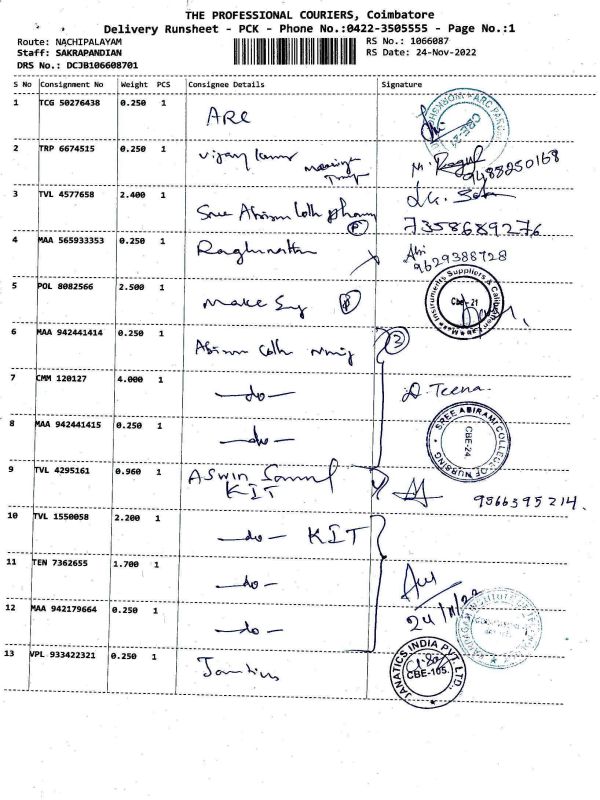 THE PROFESSIONAL COURIERS, Coimbatore
Delivery Runsheet - PCK - Phone No.:0422-3505555 - Page No.:1
Route: NACHIPALAYAM
RS No.: 1066087
Staff: SAKRAPANDIAN
RS Date: 24-Nov-2022
DRS No.: DCJB106608701
S No Consignment No Weight PCS Consignee Details Signature
1 TCG 50276438 0.250 1 ARC
CBE-21
2 TRP 6674515 0.250 1 Vijay Kumar
9488250168
3 TVL 4577658 2.400 1 Sree Abirami
7358689276
4 MAA 565933353 0.250 1 Raghunathan Abi
9629388728
5 POL 8082566 2.500 1 Make Sy (P)
Instruments Suppliers & Cbe-21
6 MAA 942441414 0.250 1 (3)
7 CMM 120127 4.000 1 -do- D. Teena
8 MAA 942441415 0.250 1 -do-
SREE ABIRAMI COLLEGE OF NURSING CBE-24
9 TVL 4295161 0.960 1 ASwin
KIT
9566395214
10 TVL 1550058 2.200 1 -do- KIT
11 TEN 7362655 1.700 1 -do-
24/11/22
12 MAA 942179664 0.250 1 -do-
13 VPL 933422321 0.250 1
JANATICS INDIA PVT. LTD. CBE-105.